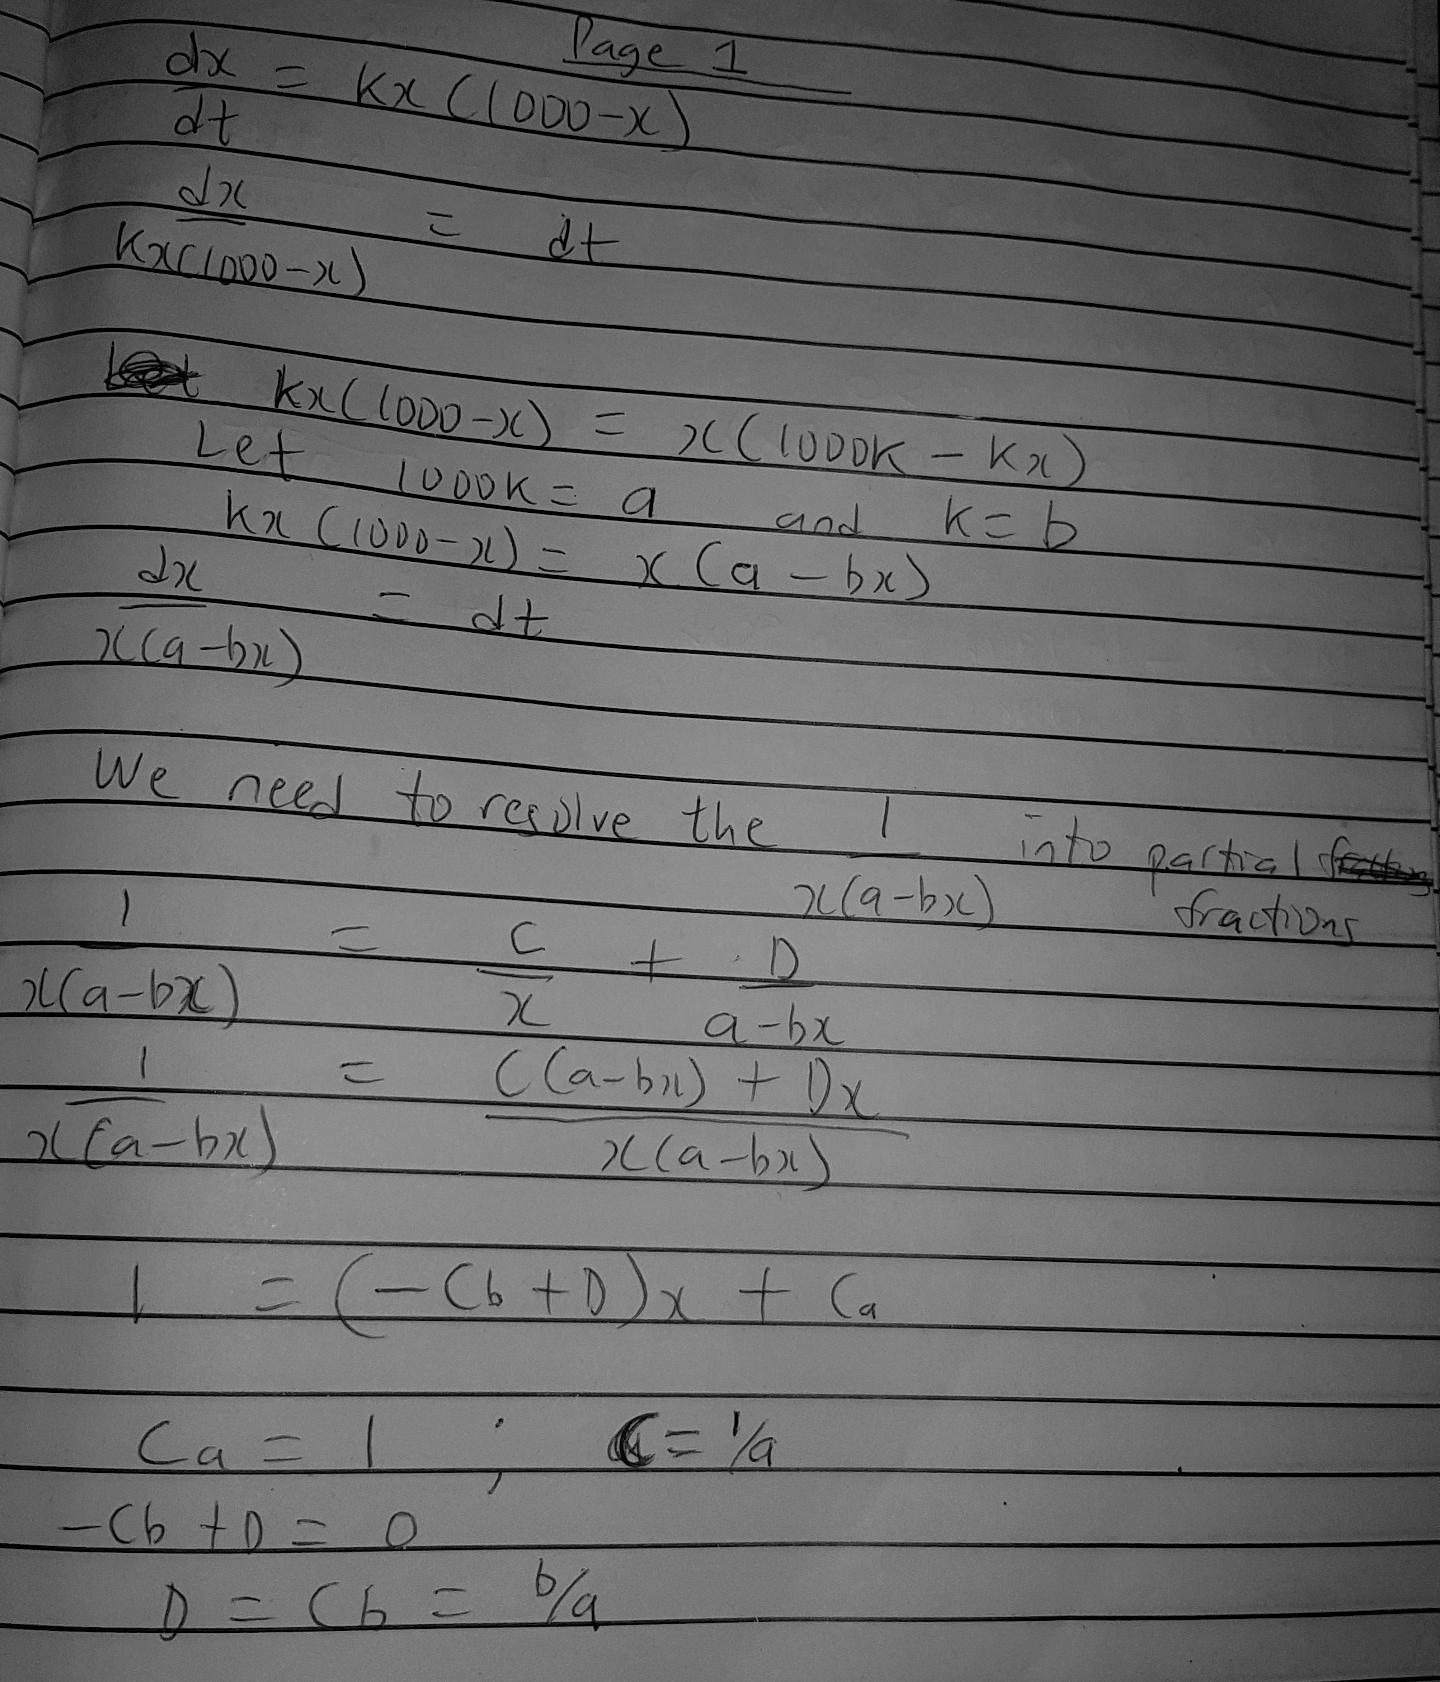 Page 1
dx/dt = kx(1000-x)
dx/kx(1000-x) = dt
kx(1000-x) = x(1000k - kx)
Let 1000k = a and k = b
kx(1000-x) = x(a - bx)
dx/x(a-bx) = dt
We need to resolve the 1/x(a-bx) into partial
fractions
1/x(a-bx) = C/x + D/a-bx
1/x(a-bx) = C(a-bx) + Dx/x(a-bx)
1 = (-Cb+D)x + Ca
Ca = 1 ; C = 1/a
-Cb + D = 0
D = Cb = b/a